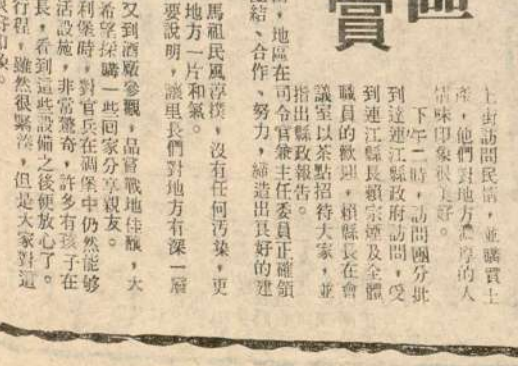 區
賞
上街訪問民情，並購買土
產，他們對地方濃淳的人
情味印象很美好。
下午二時，訪問團分批
到達連江縣政府訪問，受
到連江縣長賴宗煙及全體
職員的歡迎，賴縣長在會
議室以茶點招待大家，並
指出縣政報告。
，地區在司令官兼主任委員正確領
結、合作、努力，締造出良好的建
馬祖民風淳樸，沒有任何污染，更
地方一片和氣。
要說明，讓里長們對地方有深一層
又到酒廠參觀，品嘗戰地佳釀，大
希望採購一些回家分享親友。
利堡時，對官兵在碉堡中仍然能夠
活設施，非常驚奇，許多有孩子在
長，看到這些設備之後便放心了。
行程，雖然很緊湊，但是大家對這
好印象。